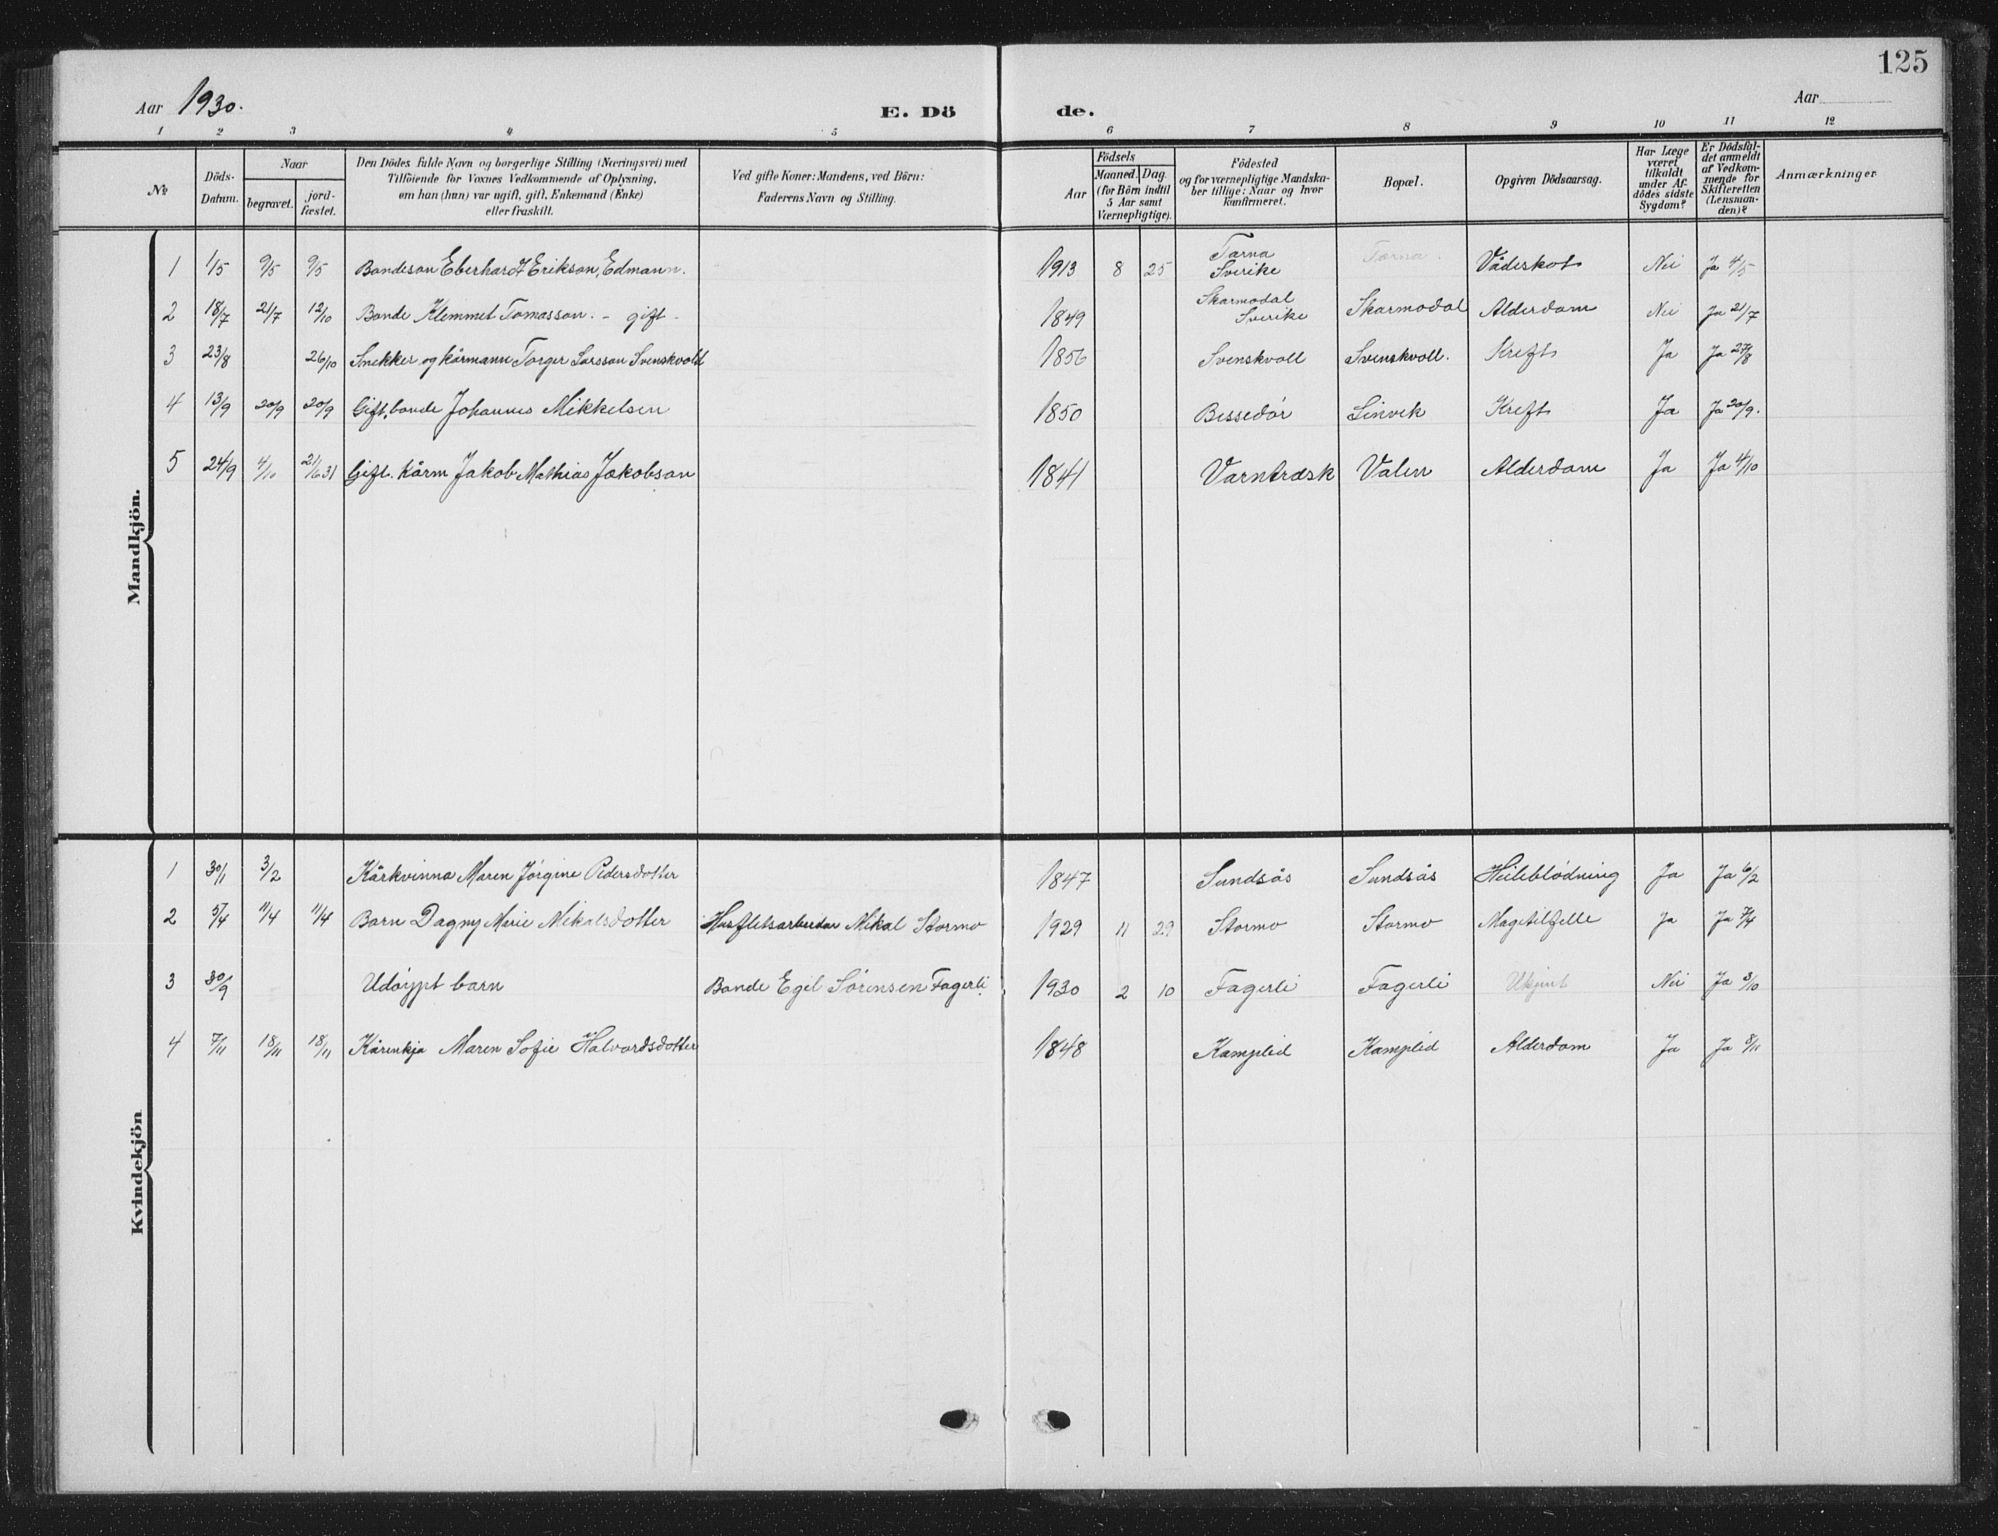 125
Aar 1930.
E. Dö de.
Aar
1 2 3 4 5 6 7 8 9 10 11 12
№
Döds-Datum.
Naar
begravet.
jord-fæstet.
Den Dödes fulde Navn og borgerlige Stilling (Næringsvei) med
Tilföiende for Voxnes Vedkommende af Oplysning,
om han (hun) var ugift, gift, Enkemand (Enke)
eller fraskilt.
Ved gifte Koner: Mandens, ved Börn:
Faderens Navn og Stilling.
Födsels
Aar
Maaned. Dag
(for Börn indtil
5 Aar samt
Værnepligtige).
Födested
og for værnepligtige Mandska-
ber tillige: Naar og hvor
konfirmeret.
Bopæl.
Opgiven Dödsaarsag.
Har Læge
været
tilkaldt
under Af-
dödes sidste
Sygdom?
Er Dödsfal-
det anmeldt
af Vedkom-
mende for
Skifteretten
(Lensman-
den)?
Anmærkninger
Mandkjön.
1 1/5 9/5 9/5 Bondeson Eberhard Erikson, Edmann. 1913 8 25 Tärna Sverike Tärna. Vådeskot Nei Ja 4/5
2 18/7 21/7 12/10 Bonde Klemmet Tomasson. – gift – 1849 Skarmodal Sverike Skarmodal Alderdom Nei Ja 21/7
3 23/8 26/10 Snekker og kårmann Torger Larsson Svenskvold 1856 Svenskvoll Svenskvoll. Kreft Ja Ja 27/8
4 13/9 20/9 20/9 Gift, bonde Johannes Mikkelsen 1850 Bessedör Linvik Kreft Ja Ja 20/9.
5 24/9 4/10 21/6 31 Gift. kårm Jakob Mathias Jakobson 1841 Varntræsk Valen Alderdom Ja Ja 4/10
Kvindekjön
1 30/1 3/2 Kårkvinna Maren Jørgine Pedersdotter 1847 Sundsås Sundsås Heileblødning Ja Ja 6/2
2 5/4 11/4 11/4 Barn Dagny Marie Mikalsdotter Husflitsarbeidar Mikal Stormo 1929 11 29 Stormo Stormo Magetilfelle Ja Ja 7/4
3 30/9 Udøypt barn Bonde Egil Sørensen Fagerli. 1930 2 10 Fagerli Fagerli Ukjent Nei Ja 3/10
4 7/11 18/11 18/11 Kårenkja Maren Sofie Halvardsdotter 1848 Kamplid Kamplid Alderdom Ja Ja 8/11